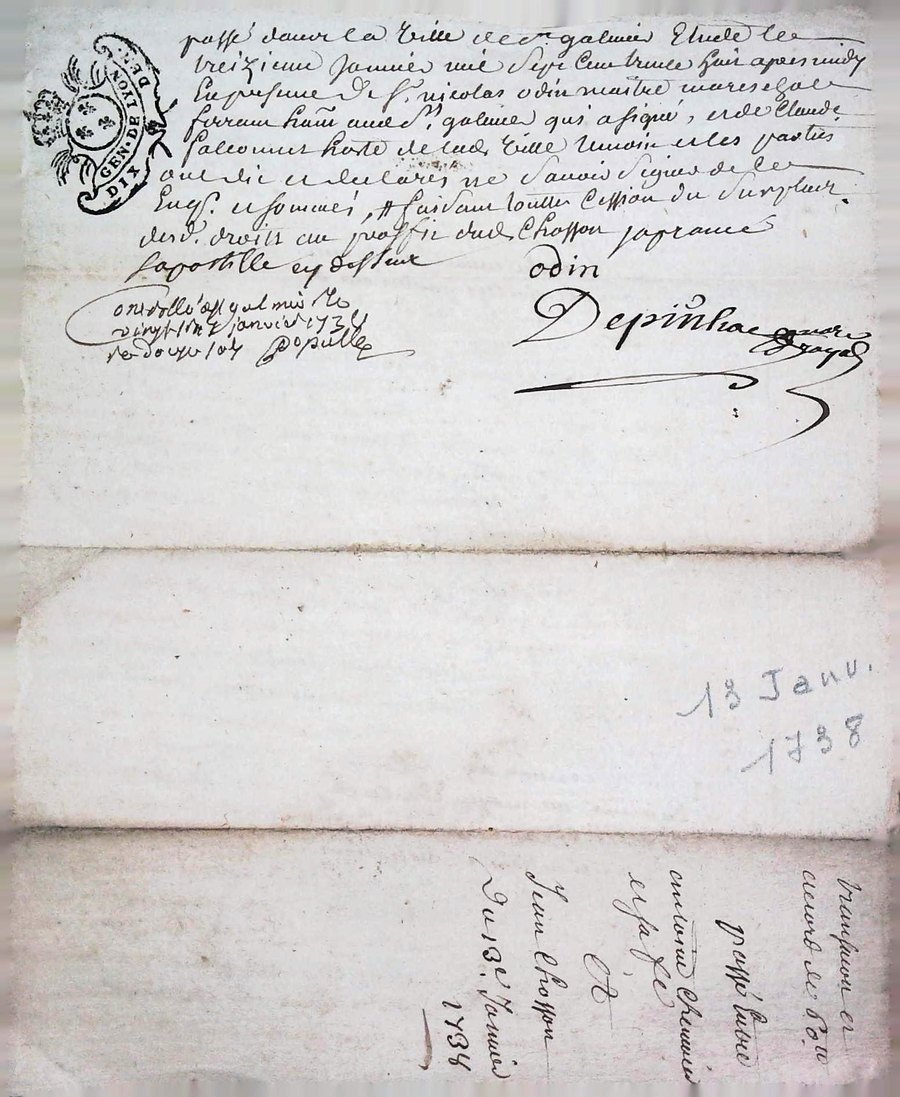 GEN · DE LYON
DIX DE
passé dans la ville de st galmier Etude le
treizieme Janvier mil Sept Cent trente huit apres midy
En presence De Sr. nicolas odin maitre mareschal
ferrant hant aud St. galmier qui a signé, et de Claude
falconnet hoste de lad. Ville temoin et les parties
ont dit et declarés ne Savoir Signer de ce
Enqs. et sommés, # faisant toutte Cession du Surplus
desd. droits au proffit dud. Chosson japrouve
Lapostille cy dessus
odin
Depinhac
royal
controllé a st galmier le
vingt janvier 1738
13 Janv.
1738
transaction et
accord de 60 tt
passé Entre
antoine
et sa fe
Et
Jean Chosson
Du 13e. Janvier
1738